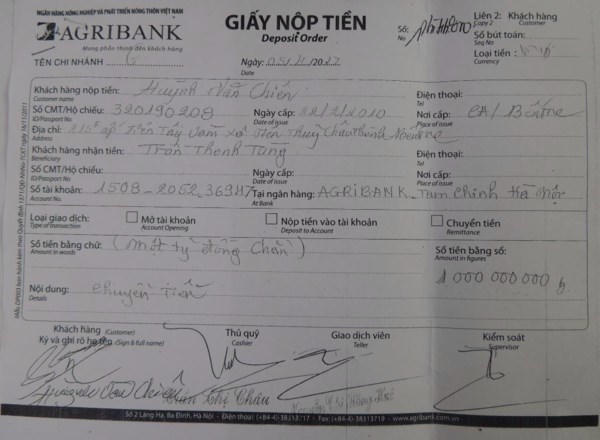 NGÂN HÀNG NÔNG NGHIỆP VÀ PHÁT TRIỂN NÔNG THÔN VIỆT NAM
AGRIBANK
Mang phồn thịnh đến khách hàng
TÊN CHI NHÁNH
GIẤY NỘP TIỀN
Deposit Order
Ngày:
Date
Số:
No
Liên 2: Khách hàng
Copy 2 Customer
Số bút toán:
Seq No
Loại tiền:
Currency
Khách hàng nộp tiền: Huỳnh Văn Chiến
Customer name
Điện thoại:
Tel
Số CMT/Hộ chiếu: 320190208 Ngày cấp: /2010 Nơi cấp: CA/ Bến tre
ID/Passport No Date of issue Place of issue
Địa chỉ: ấp Tiên Tây xã Tiên Thủy Châu Thành
Address
Khách hàng nhận tiền: Trần Thanh Tùng Điện thoại:
Beneficiary Tel
Số CMT/Hộ chiếu: Ngày cấp: Nơi cấp:
ID/Passport No Date of issue Place of issue
Số tài khoản: 1508-2052 Tại ngân hàng: AGRIBANK Hà Nội
Account No. At Bank
Loại giao dịch: Mở tài khoản Nộp tiền vào tài khoản Chuyển tiền
Type of transaction Account Opening Deposit to Account Remittance
Số tiền bằng chữ: (một tỷ đồng chẵn) Số tiền bằng số:
Amount in words Amount in figures
1 000 000 000 đ
Nội dung: chuyển tiền
Details
Khách hàng (Customer) Thủ quỹ Giao dịch viên Kiểm soát
Ký và ghi rõ họ tên (Sign & full name) Cashier Teller Supervisor
Huỳnh Văn Chiến Trần Thị Châu
Số 2 Láng Hạ, Ba Đình, Hà Nội - Điện thoại: (+84-4) 38313717 - Fax: (+84-4) 38313719 - www.agribank.com.vn